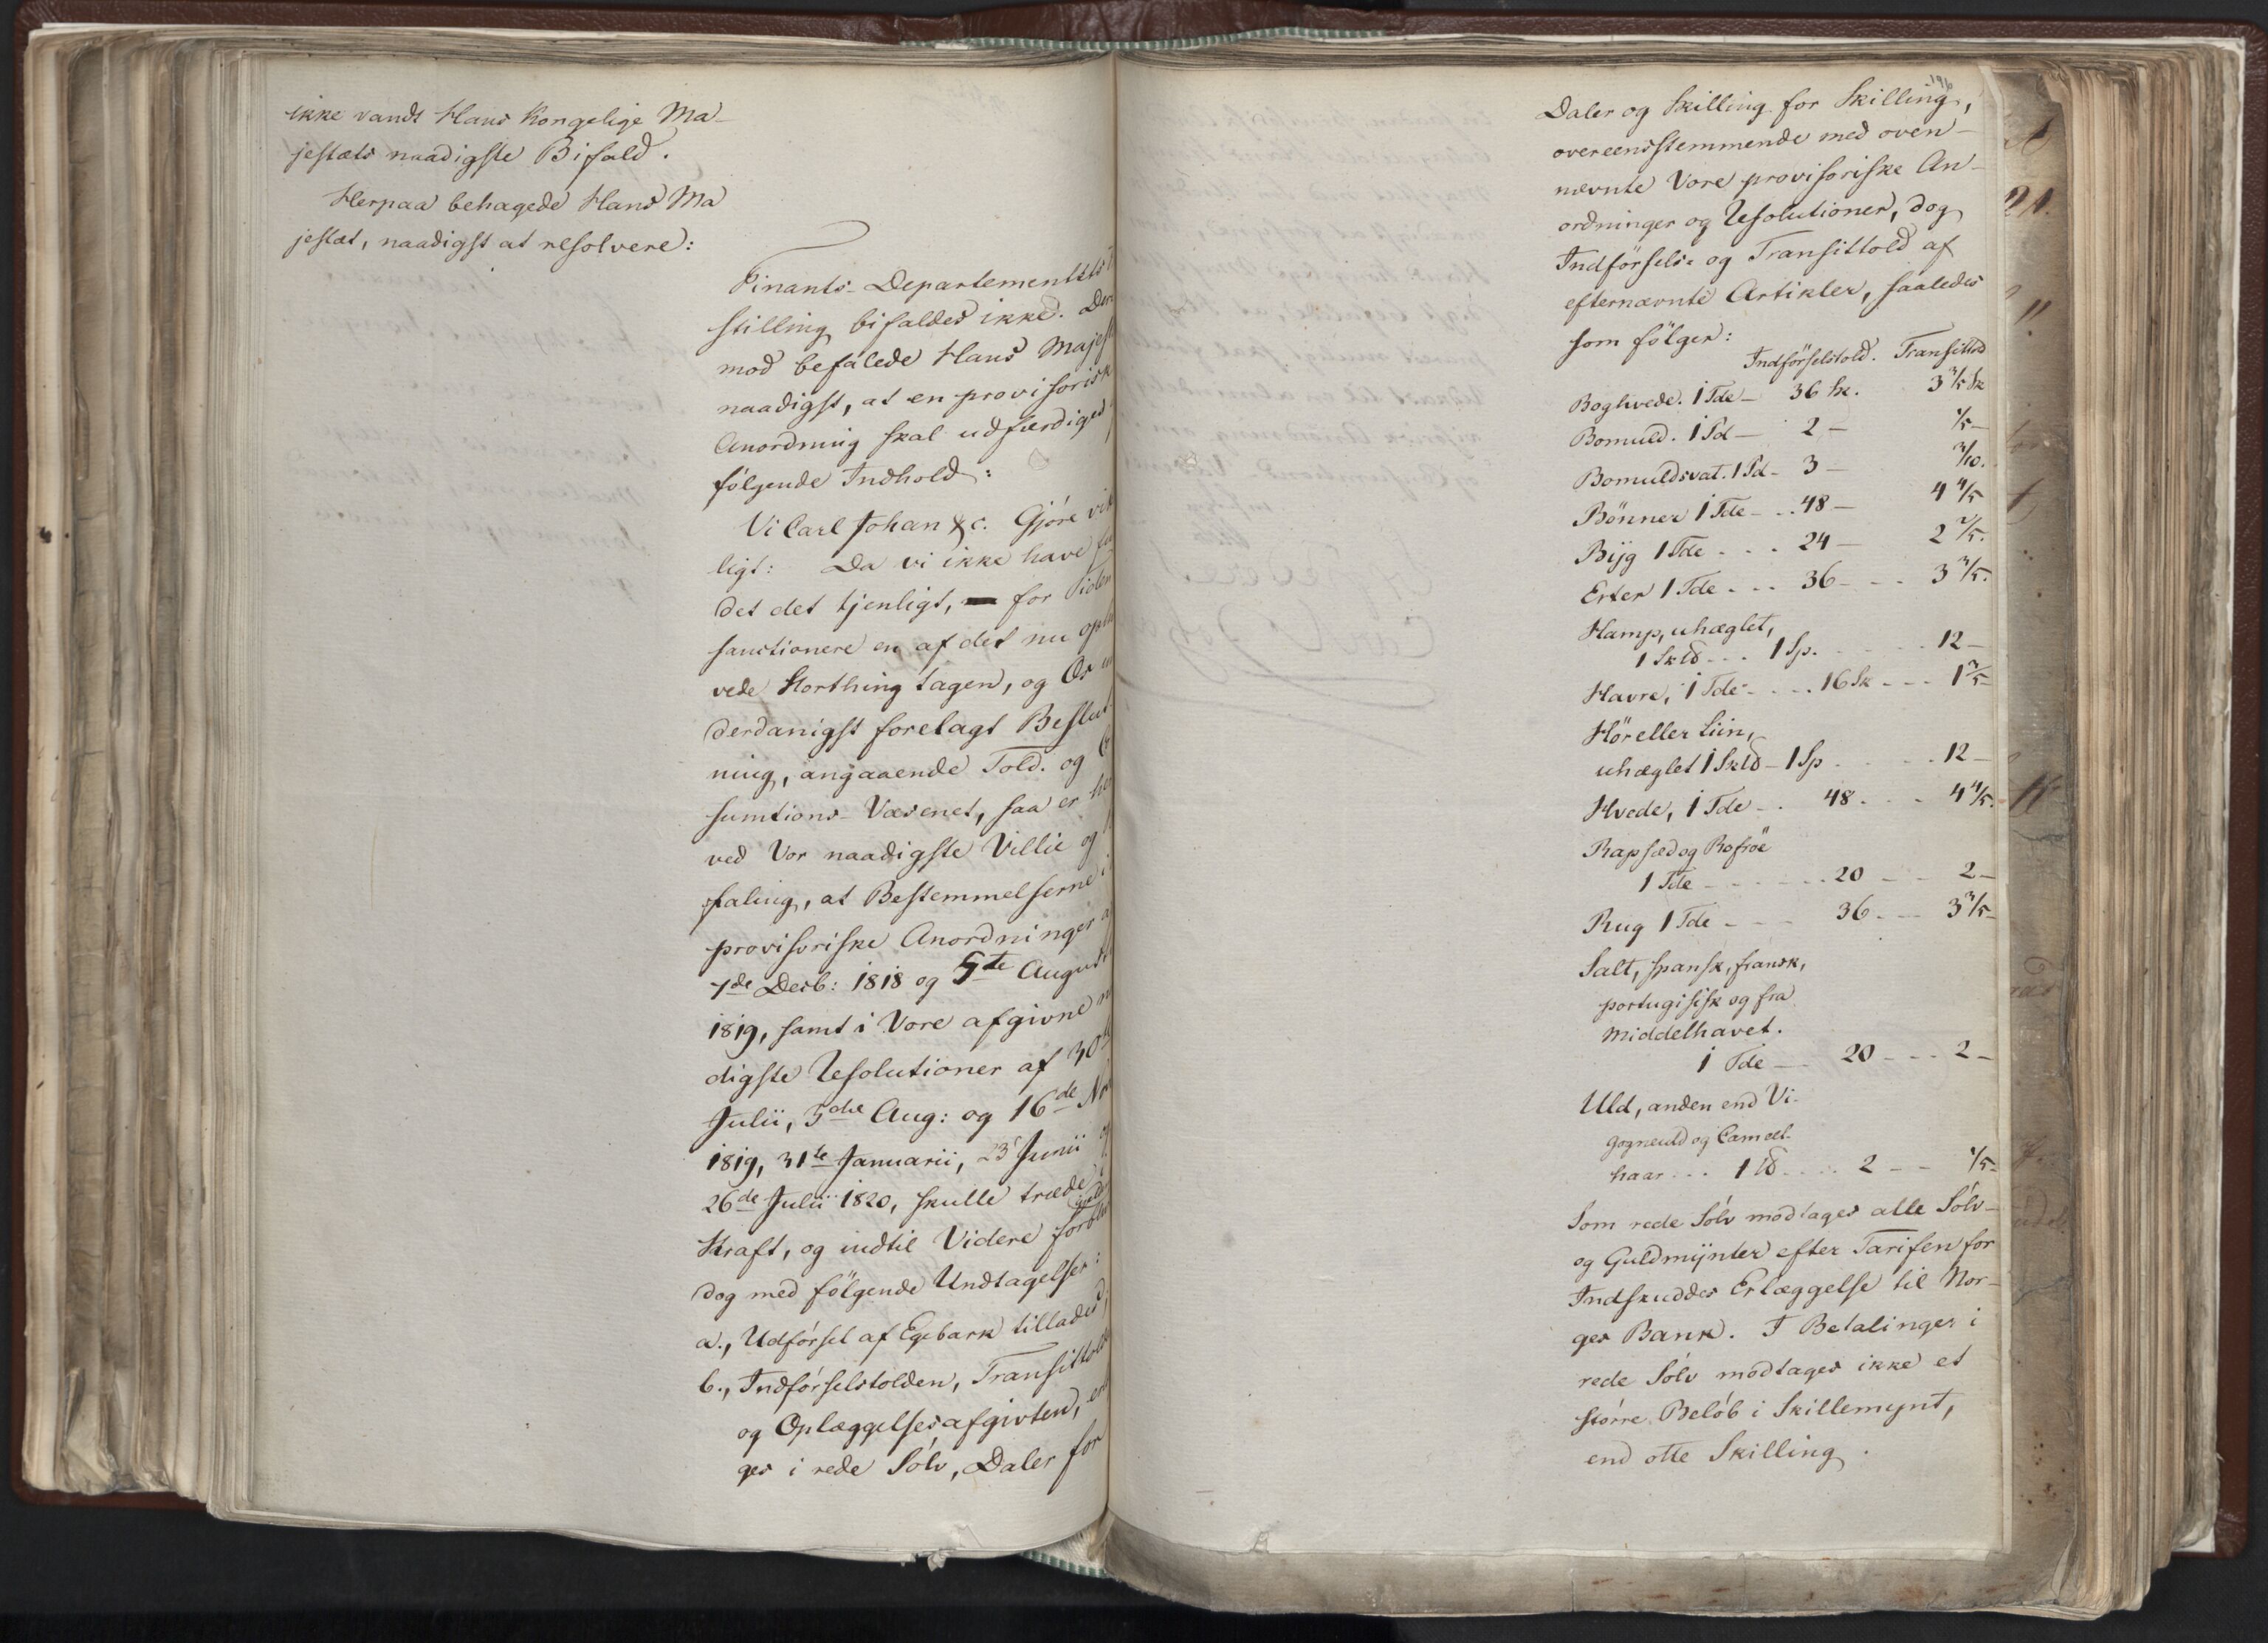 ikke vandt Hans Kongelige Ma-
jestæts naadigste Bifald.
Herpaa behagede Hans Ma
jestæt, naadigst at resolvere:
Finants-Departementets
stilling bifaldes ikke. Der
mod befalede Hans Majest
naadigst, at en provisorisk
Anordning skal udfærdiges
følgende Indhold:
Vi Carl Johan &c. Gjøre vit
ligt: Da vi ikke have fu
det det tjenligt, for Tiden
sanctionere en af det nu ophæ
vede Storthing tagen, og Os un
derdanigst forelagt Beslut
ning, angaaende Told- og
sumtions-Væsenet, saa er her
ved Vor naadigste Villie og
faling, at Bestemmelserne i
provisoriske Anordninger a
7de Decb: 1818 og 5te August
1819, samt i Vore afgivne n
digste Resolutioner af 30
Julii, 3die Aug: og 16de Nov
1819, 31te Januarii, 23 Junii og
26de Julii 1820, skulle træde
Kraft, og indtil Videre forbli
dog med følgende Undtagelser:
a., Udførsel af Egebark tillades,
b., Indførselstolden, Transittolde
og Oplæggelsesafgivten, er
ges i rede Sölv, Daler for
196
Daler og Skilling for Skilling,
overeensstemmende med oven-
nævnte Vore provisoriske An-
ordninger og Resolutioner, dog
Indförsels- og Transittold af
efternævnte Artikler, saaledes
som fölger:
Indförselstold. Transittold
Boghvede. 1 Tde - 36 sk. 3 3/5 sk
Bomuld. 1 Pd - 2 - 1/5 -
Bomuldsvat. 1 Pd - 3 - 3/10.
Bönner 1 Tde - . . 48 - 4 4/5
Byg 1 Tde . . . 24 - 2 2/5.
Erter 1 Tde . . . 36 - . . 3 3/5.
Hamp, uhæglet,
1 Sk℔ . . . 1 Sp. . . . . 12 -
Havre, 1 Tde . . . 16 Sk - . . 1 3/5 -
Hör eller Liin,
uhæglet 1 Sk℔ - 1 Sp . . . . 12 -
Hvede, 1 Tde - . 48 . . . 4 4/5.
Rapsæd og Rofröe
1 Tde - . . . . 20 - . 2 -
Rug 1 Tde - . . 36 . . 3 3/5 -
Salt, spansk, fransk,
portugisisk og fra
Middelhavet.
1 Tde - . 20 - . . 2 -
Uld, anden end Vi-
gogneuld og Cameel-
haar . . . 1 ℔ . . . 2 - . 1/5 -
Som rede Sölv modtages alle Sölv-
og Guldmynter efter Tarifen for
Indskuddes Erlæggelse til Nor-
ges Bank. I Betalinger i
rede Sölv modtages ikke et
större Belöb i Skillemynt,
end otte Skilling.